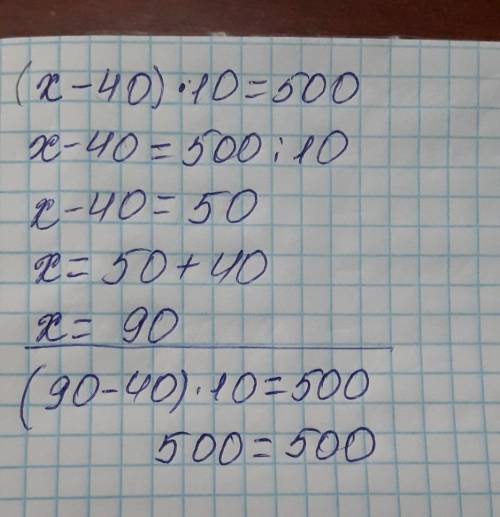 (x-40)·10=500
x-40=500:10
x-40=50
x=50+40
x= 90
(90-40)·10=500
500=500